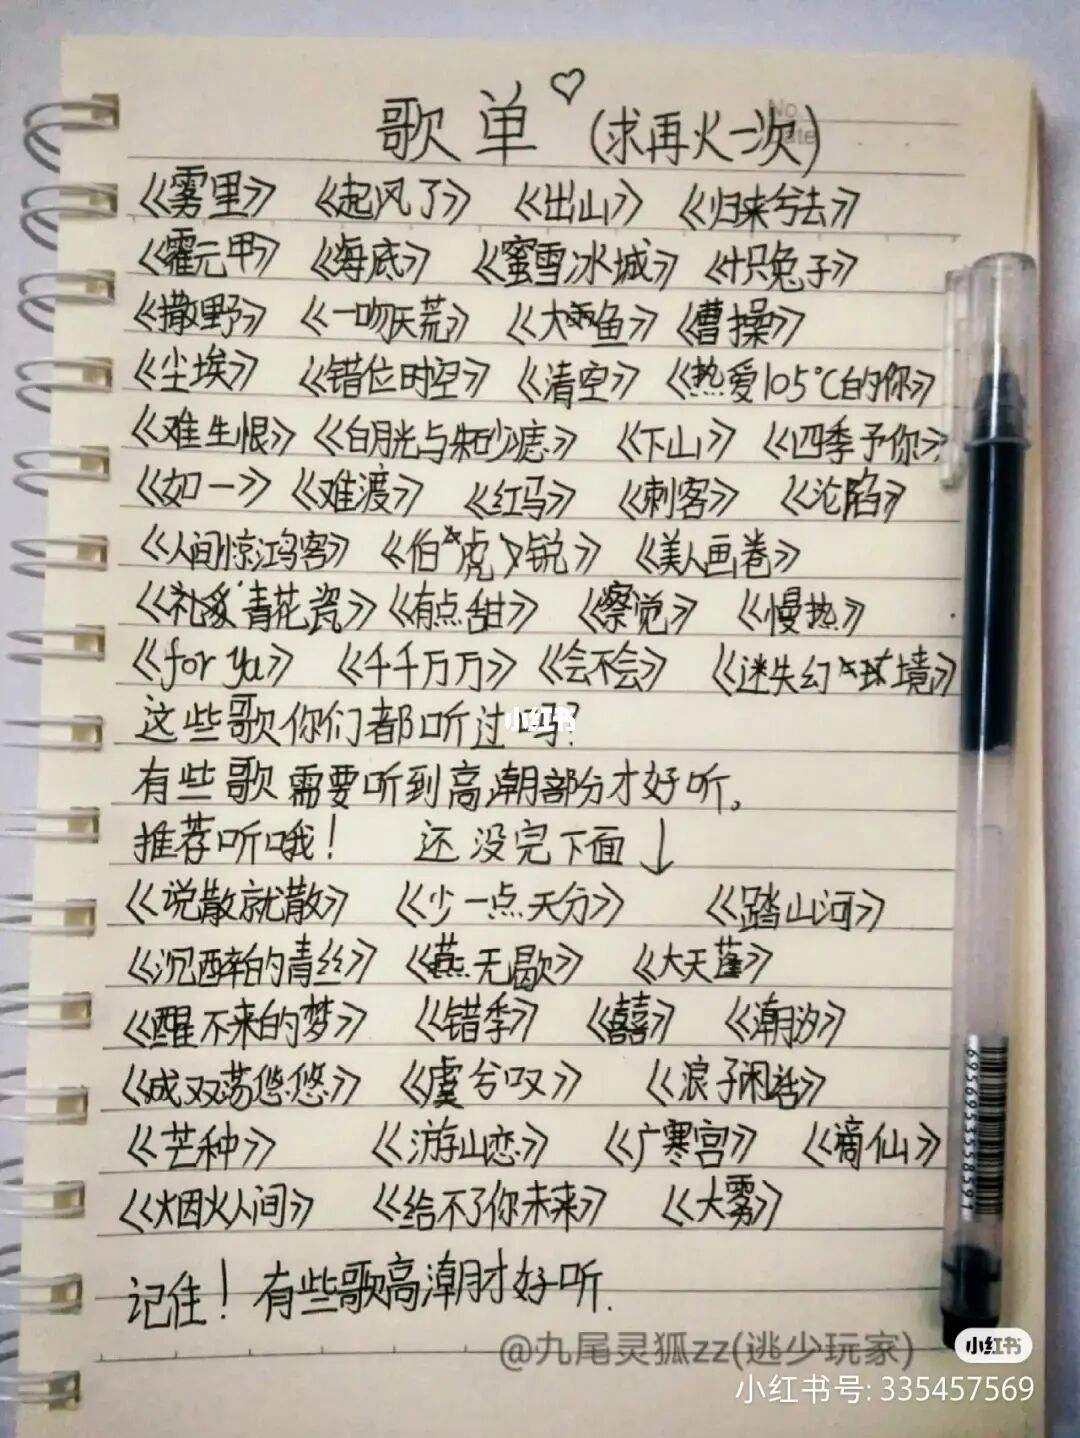 歌单♡(求再火一次)
No.
Date
《雾里》 《起风了》 《出山》 《归来兮去》
《霍元甲》 《海底》 《蜜雪冰城》 《十只兔子》
《撒野》 《一吻天荒》 《大鱼》 《曹操》
《尘埃》 《错位时空》 《清空》 《热爱105℃的你》
《难生恨》 《白月光与朱砂痣》 《下山》 《四季予你》
《如一》 《难渡》 《红马》 《刺客》 《沦陷》
《人间惊鸿客》 《伯虎说》 《美人画卷》
《青花瓷》 《有点甜》 《察觉》 《慢热》
《for ya》 《千千万万》 《会不会》 《迷失幻境》
这些歌你们都听过吗?
小红书
有些歌需要听到高潮部分才好听。
推荐听哦! 还没完下面↓
《说散就散》 《少一点天分》 《踏山河》
《沉醉的青丝》 《燕无歇》 《大天蓬》
《醒不来的梦》 《错季》 《囍》 《潮汐》
《成双荡悠悠》 《虞兮叹》 《浪子闲话》
《芒种》 《游山恋》 《广寒宫》 《谪仙》
《烟火人间》 《给不了你未来》 《大雾》
记住!有些歌高潮才好听.
6956953358591
@九尾灵狐zz(逃少玩家)
小红书
小红书号: 335457569